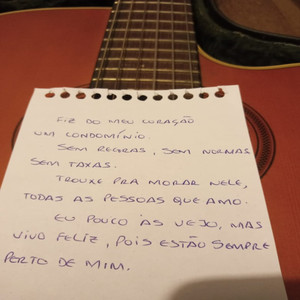 FIZ DO MEU CORAÇÃO
UM CONDOMÍNIO.
SEM REGRAS, SEM NORMAS
SEM TAXAS.
TROUXE PRA MORAR NELE,
TODAS AS PESSOAS QUE AMO.
EU POUCO ÀS VEJO, MAS
VIVO FELIZ, POIS ESTÃO SEMPRE
PERTO DE MIM.